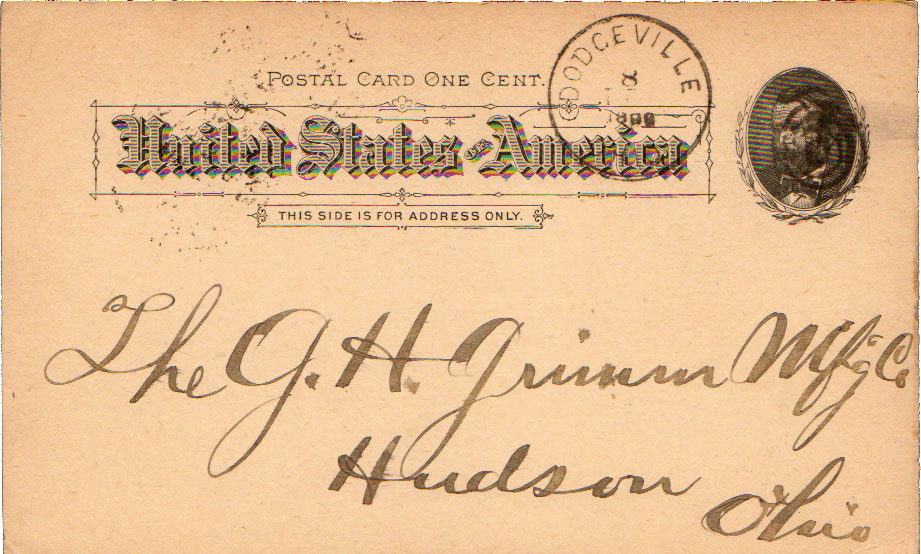 DODGEVILLE
POSTAL CARD ONE CENT.
United States OF America
THIS SIDE IS FOR ADDRESS ONLY.
The G. H. Grimm Mfg Co
Hudson
Ohio